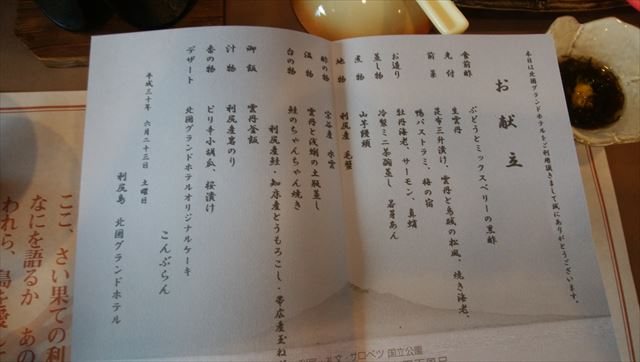 本日は北國グランドホテルをご利用頂きまして誠にありがとうございます。
お献立
食前酢 ぶどうとミックスベリーの黒酢
先付 生雲丹
前菜 昆布三升漬け、雲丹と烏賊の松風、焼き海老、
鴨パストラミ、梅の宿
お造り 牡丹海老、サーモン、真蛸
蒸し物 冷製ミニ茶碗蒸し 若芽あん
煮物 山芋饅頭
地物 利尻産 毛蟹
酢の物 宗谷産 水雲
温物 雲丹と浅蜊の土瓶蒸し
台の物 鮭のちゃんちゃん焼き
利尻産鮭・知床産とうもろこし・帯広産玉ね
御飯 雲丹釜飯
汁物 利尻産岩のり
香の物 ピリ辛小胡瓜、桜漬け
デザート 北國グランドホテルオリジナルケーキ
こんぶらん
平成三十年 六月二十三日 土曜日
利尻島 北國グランドホテル
ここ、さい果ての利
なにを語るか あの
われら、島を愛し
サロベツ 国立公園